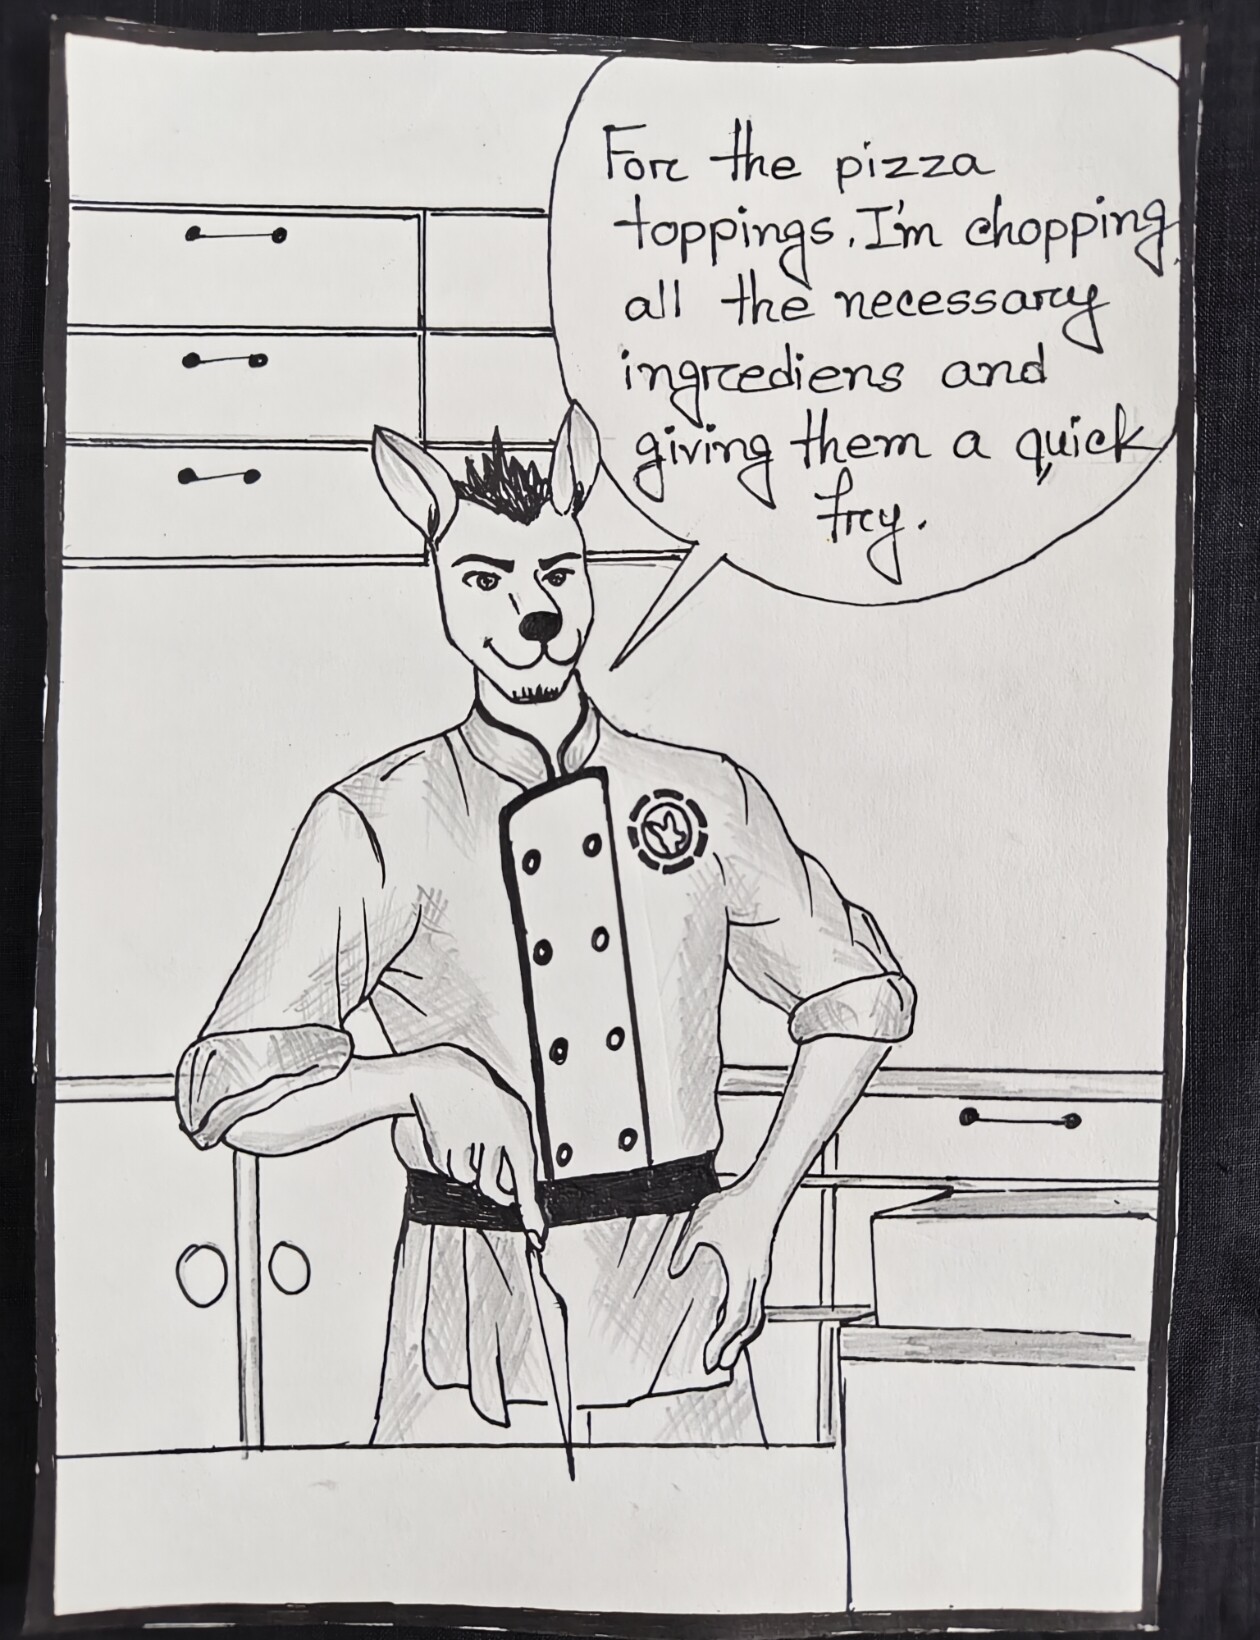 For the pizza
toppings, I'm chopping
all the necessary
ingrediens and
giving them a quick
fry.